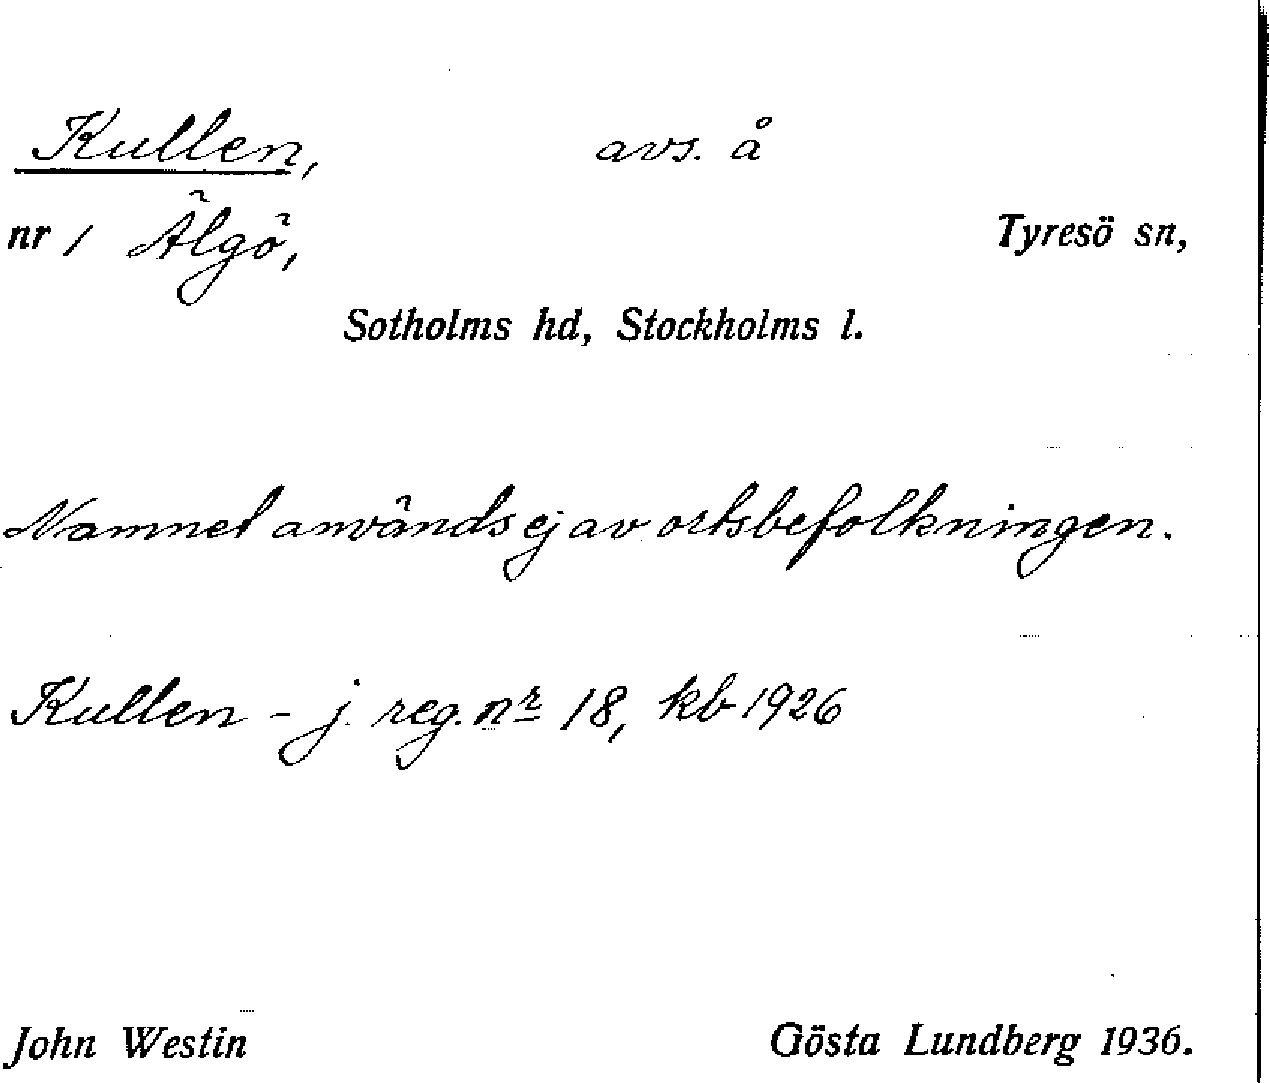 Kullen, avs. å
nr 1 Älgö, Tyresö sn,
Sotholms hd, Stockholms l.
Namnet används ej av ortsbefolkningen.
Kullen - j. reg. nr 18, kb 1926
John Westin Gösta Lundberg 1936.